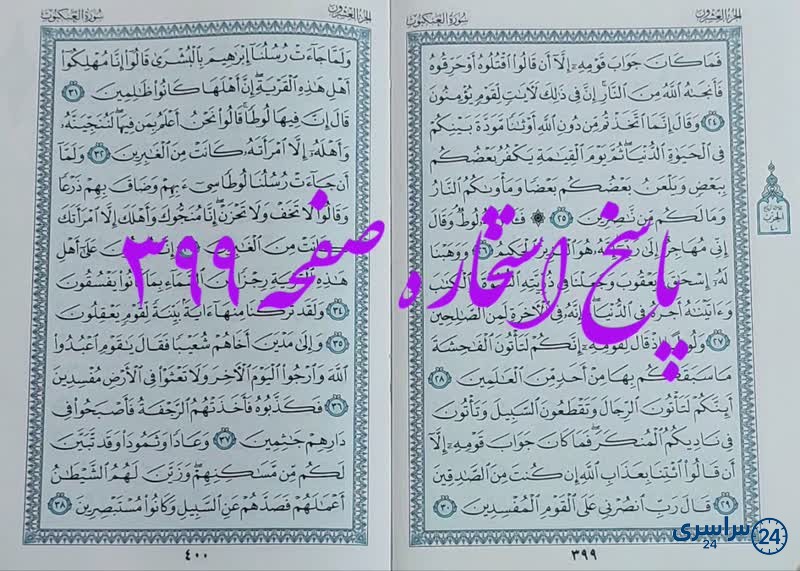 الجزء العشرون
سورة العنكبوت
فَمَا كَانَ جَوَابَ قَوْمِهِۦٓ إِلَّآ أَن قَالُوا۟ ٱقْتُلُوهُ أَوْ حَرِّقُوهُ
فَأَنجَىٰهُ ٱللَّهُ مِنَ ٱلنَّارِ إِنَّ فِى ذَٰلِكَ لَـَٔايَٰتٍ لِّقَوْمٍ يُؤْمِنُونَ
٢٤ وَقَالَ إِنَّمَا ٱتَّخَذْتُم مِّن دُونِ ٱللَّهِ أَوْثَٰنًا مَّوَدَّةَ بَيْنِكُمْ
فِى ٱلْحَيَوٰةِ ٱلدُّنْيَا ثُمَّ يَوْمَ ٱلْقِيَٰمَةِ يَكْفُرُ بَعْضُكُم
بِبَعْضٍ وَيَلْعَنُ بَعْضُكُم بَعْضًا وَمَأْوَىٰكُمُ ٱلنَّارُ
وَمَا لَكُم مِّن نَّٰصِرِينَ ٢٥ لُوطٌ وَقَالَ
إِنِّى مُهَاجِرٌ إِلَىٰ رَبِّىٓ إِنَّهُۥ هُوَ ٱلْعَزِيزُ ٱلْحَكِيمُ ٢٦ وَوَهَبْنَا
لَهُۥٓ إِسْحَٰقَ وَيَعْقُوبَ وَجَعَلْنَا فِى ذُرِّيَّتِهِ ٱلنُّبُوَّةَ وَٱلْكِتَٰبَ
وَءَاتَيْنَٰهُ أَجْرَهُۥ فِى ٱلدُّنْيَا وَإِنَّهُۥ فِى ٱلْـَٔاخِرَةِ لَمِنَ ٱلصَّٰلِحِينَ
٢٧ وَلُوطًا إِذْ قَالَ لِقَوْمِهِۦٓ إِنَّكُمْ لَتَأْتُونَ ٱلْفَٰحِشَةَ
مَا سَبَقَكُم بِهَا مِنْ أَحَدٍ مِّنَ ٱلْعَٰلَمِينَ ٢٨
أَئِنَّكُمْ لَتَأْتُونَ ٱلرِّجَالَ وَتَقْطَعُونَ ٱلسَّبِيلَ وَتَأْتُونَ
فِى نَادِيكُمُ ٱلْمُنكَرَ فَمَا كَانَ جَوَابَ قَوْمِهِۦٓ إِلَّآ
أَن قَالُوا۟ ٱئْتِنَا بِعَذَابِ ٱللَّهِ إِن كُنتَ مِنَ ٱلصَّٰدِقِينَ
٢٩ قَالَ رَبِّ ٱنصُرْنِى عَلَى ٱلْقَوْمِ ٱلْمُفْسِدِينَ ٣٠
٣٩٩
الحزب
٤٠
الجزء العشرون
سورة العنكبوت
وَلَمَّا جَآءَتْ رُسُلُنَآ إِبْرَٰهِيمَ بِٱلْبُشْرَىٰ قَالُوٓا۟ إِنَّا مُهْلِكُوٓا۟
أَهْلِ هَٰذِهِ ٱلْقَرْيَةِ إِنَّ أَهْلَهَا كَانُوا۟ ظَٰلِمِينَ ٣١
قَالَ إِنَّ فِيهَا لُوطًا قَالُوا۟ نَحْنُ أَعْلَمُ بِمَن فِيهَا لَنُنَجِّيَنَّهُۥ
وَأَهْلَهُۥٓ إِلَّا ٱمْرَأَتَهُۥ كَانَتْ مِنَ ٱلْغَٰبِرِينَ ٣٢ وَلَمَّآ
أَن جَآءَتْ رُسُلُنَا لُوطًا سِىٓءَ بِهِمْ وَضَاقَ بِهِمْ ذَرْعًا
وَقَالُوا۟ لَا تَخَفْ وَلَا تَحْزَنْ إِنَّا مُنَجُّوكَ وَأَهْلَكَ إِلَّا ٱمْرَأَتَكَ
كَانَتْ مِنَ ٱلْغَٰبِرِينَ عَلَىٰٓ أَهْلِ
هَٰذِهِ ٱلْقَرْيَةِ رِجْزًا مِّنَ ٱلسَّمَآءِ بِمَا كَانُوا۟ يَفْسُقُونَ
٣٤ وَلَقَد تَّرَكْنَا مِنْهَآ ءَايَةًۢ بَيِّنَةً لِّقَوْمٍ يَعْقِلُونَ
٣٥ وَإِلَىٰ مَدْيَنَ أَخَاهُمْ شُعَيْبًا فَقَالَ يَٰقَوْمِ ٱعْبُدُوا۟
ٱللَّهَ وَٱرْجُوا۟ ٱلْيَوْمَ ٱلْـَٔاخِرَ وَلَا تَعْثَوْا۟ فِى ٱلْأَرْضِ مُفْسِدِينَ
٣٦ فَكَذَّبُوهُ فَأَخَذَتْهُمُ ٱلرَّجْفَةُ فَأَصْبَحُوا۟ فِى
دَارِهِمْ جَٰثِمِينَ ٣٧ وَعَادًا وَثَمُودَا۟ وَقَد تَّبَيَّنَ
لَكُم مِّن مَّسَٰكِنِهِمْ وَزَيَّنَ لَهُمُ ٱلشَّيْطَٰنُ
أَعْمَٰلَهُمْ فَصَدَّهُمْ عَنِ ٱلسَّبِيلِ وَكَانُوا۟ مُسْتَبْصِرِينَ ٣٨
٤٠٠
پاسخ استخاره صفحه ۳۹۹
سراسری
24
24